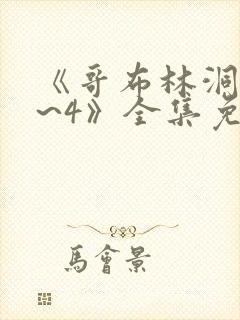 《哥布林洞
~4》全集免
馬會景